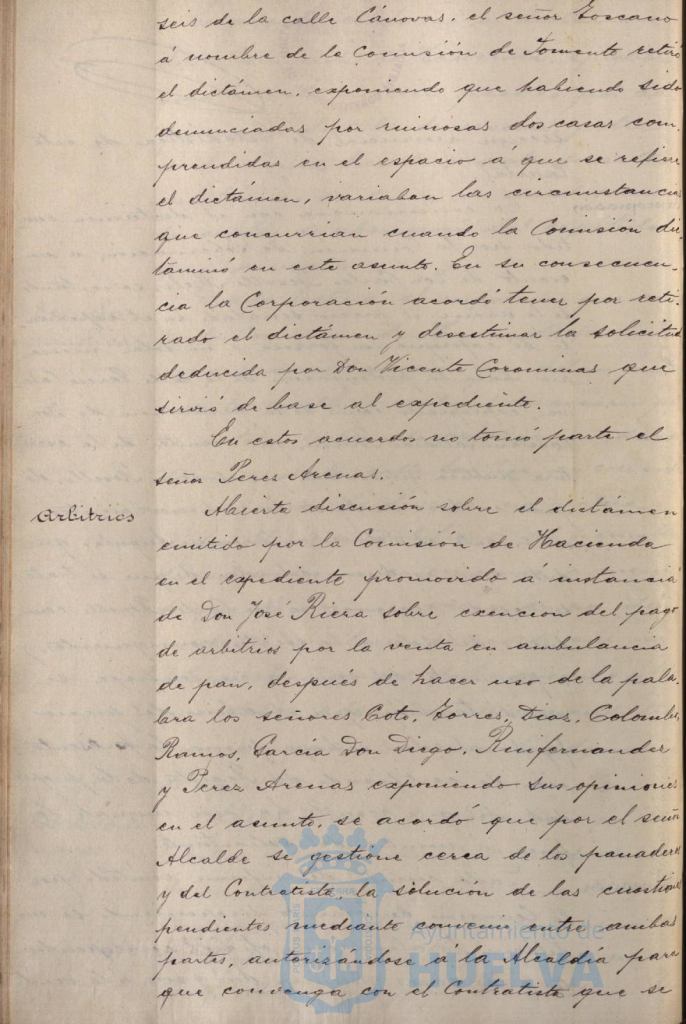 seis de la calle Cánovas, el señor Toscano
á nombre de la Comisión de Fomento retiró
el dictámen, exponiendo que habiendo sido
denunciadas por ruinosas dos casas com-
prendidas en el espacio á que se refiere
el dictámen, variaban las circunstancias
que concurrian cuando la Comisión dic
taminó en este asunto. En su consecuen-
cia la Corporación acordó tener por reti-
rado el dictámen y desestimar la solicitud
deducida por Don Vicente Corominas que
sirvió de base al expediente.
En estos acuerdos no tomó parte el
señor Perez Arenas.
Arbitrios
Abierta discusión sobre el dictámen
emitido por la Comisión de Hacienda
en el expediente promovido á instancia
de Don José Riera sobre exencion del pago
de arbitrios por la venta en ambulancia
de pan, después de hacer uso de la pala-
bra los señores Coto, Torres, Diaz, Colombo,
Ramos, García Don Diego, Ruifernandez
y Perez Arenas exponiendo sus opiniones
en el asunto, se acordó que por el señor
Alcalde se gestione cerca de los panaderos
y del Contratista, la solución de las cuestiones
pendientes mediante convenio entre ambas
partes, autorizándose á la Alcaldía para
que convenga con el Contratista que se
Ayuntamiento de
HUELVA